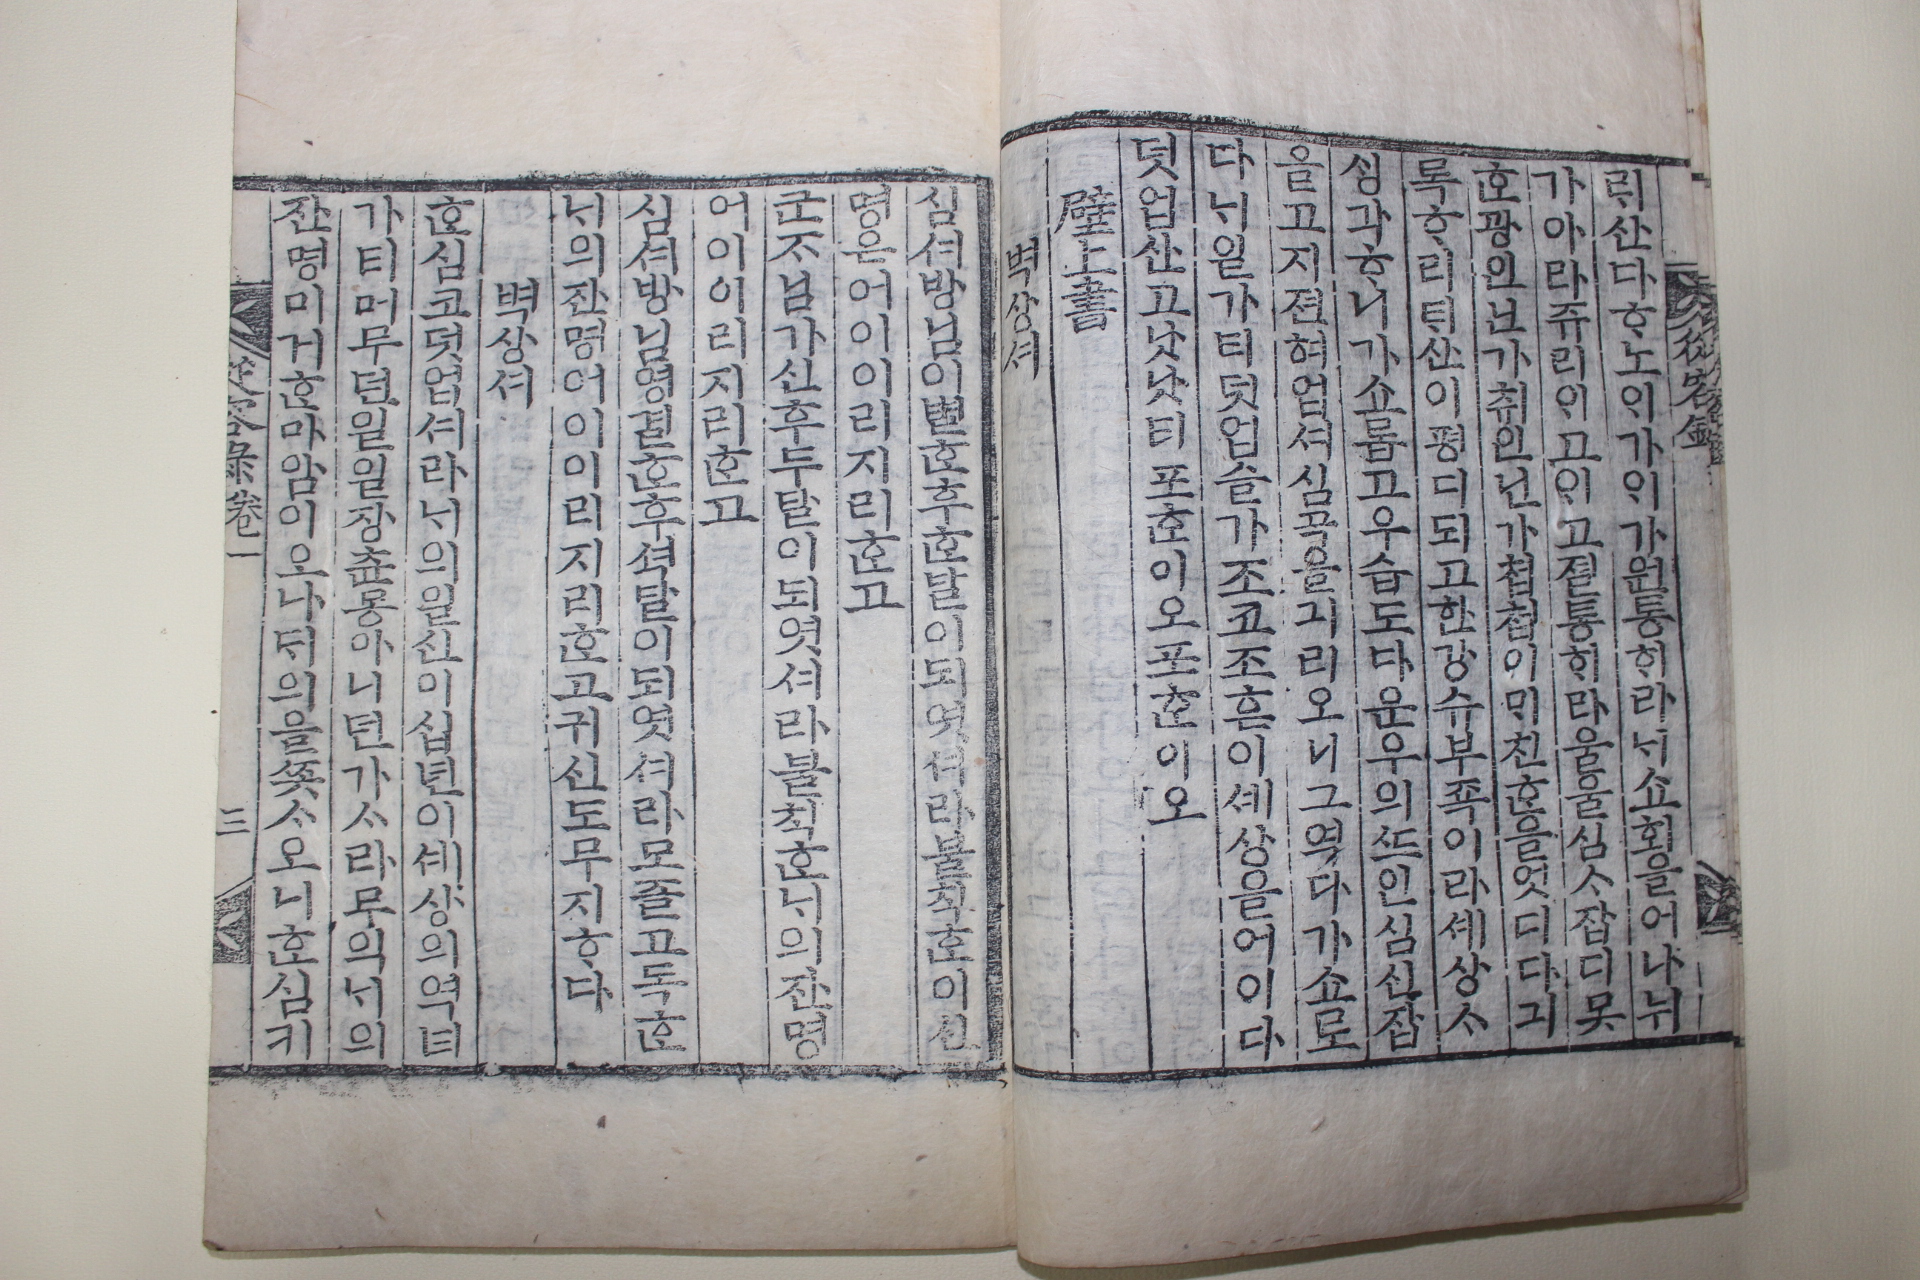 從容錄
뤼산다ᄒᆞ노이가이가원통ᄒᆡ라ᄂᆡ쇼회을어나뉘
가아라쥬리이고이고졀통ᄒᆡ라울울심ᄉᆞ잡디못
ᄒᆞᆫ광인넌가취인넌가첩첩이ᄆᆡ친ᄒᆞᆫ을엇디다긔
록ᄒᆞ리ᄐᆡ산이평디되고한강슈부죡이라셰상ᄉᆞ
ᄉᆡᆼ각ᄒᆞ니가쇼롭고우습도다운우의ᄯᅳ인심신잡
을고지젼혀업셔심곡을긔리오니그역다가쇼로
다ᄂᆡ일가티덧업슬가조코조흔이셰상을어이다
덧업산고낫낫티포ᄒᆞᆫ이오포ᄒᆞᆫ이오
壁上書
벽상셔
심셔방님이별ᄒᆞᆫ후ᄒᆞᆫ달이되엿셔라불칙ᄒᆞᆫ이신
명은어이이리지리ᄒᆞᆫ고
군ᄌᆞ님가신후두달이되엿셔라불칙ᄒᆞᆫᄂᆡ의잔명
어이이리지리ᄒᆞᆫ고
심셔방님영결ᄒᆞᆫ후셕달이되엿셔라모즐고독ᄒᆞᆫ
ᄂᆡ의잔명어이이리지리ᄒᆞᆫ고귀신도무지ᄒᆞ다
벽상셔
ᄒᆞᆫ심코덧업셔라ᄂᆡ의일신이십년이셰상의역ᄐᆡ
가티머무던일일장츈몽아니던가ᄉᆞ라무의ᄂᆡ의
잔명미거ᄒᆞᆫ마암이오나뒤의을쫏ᄉᆞ오니ᄒᆞᆫ심키
從容錄卷一 三